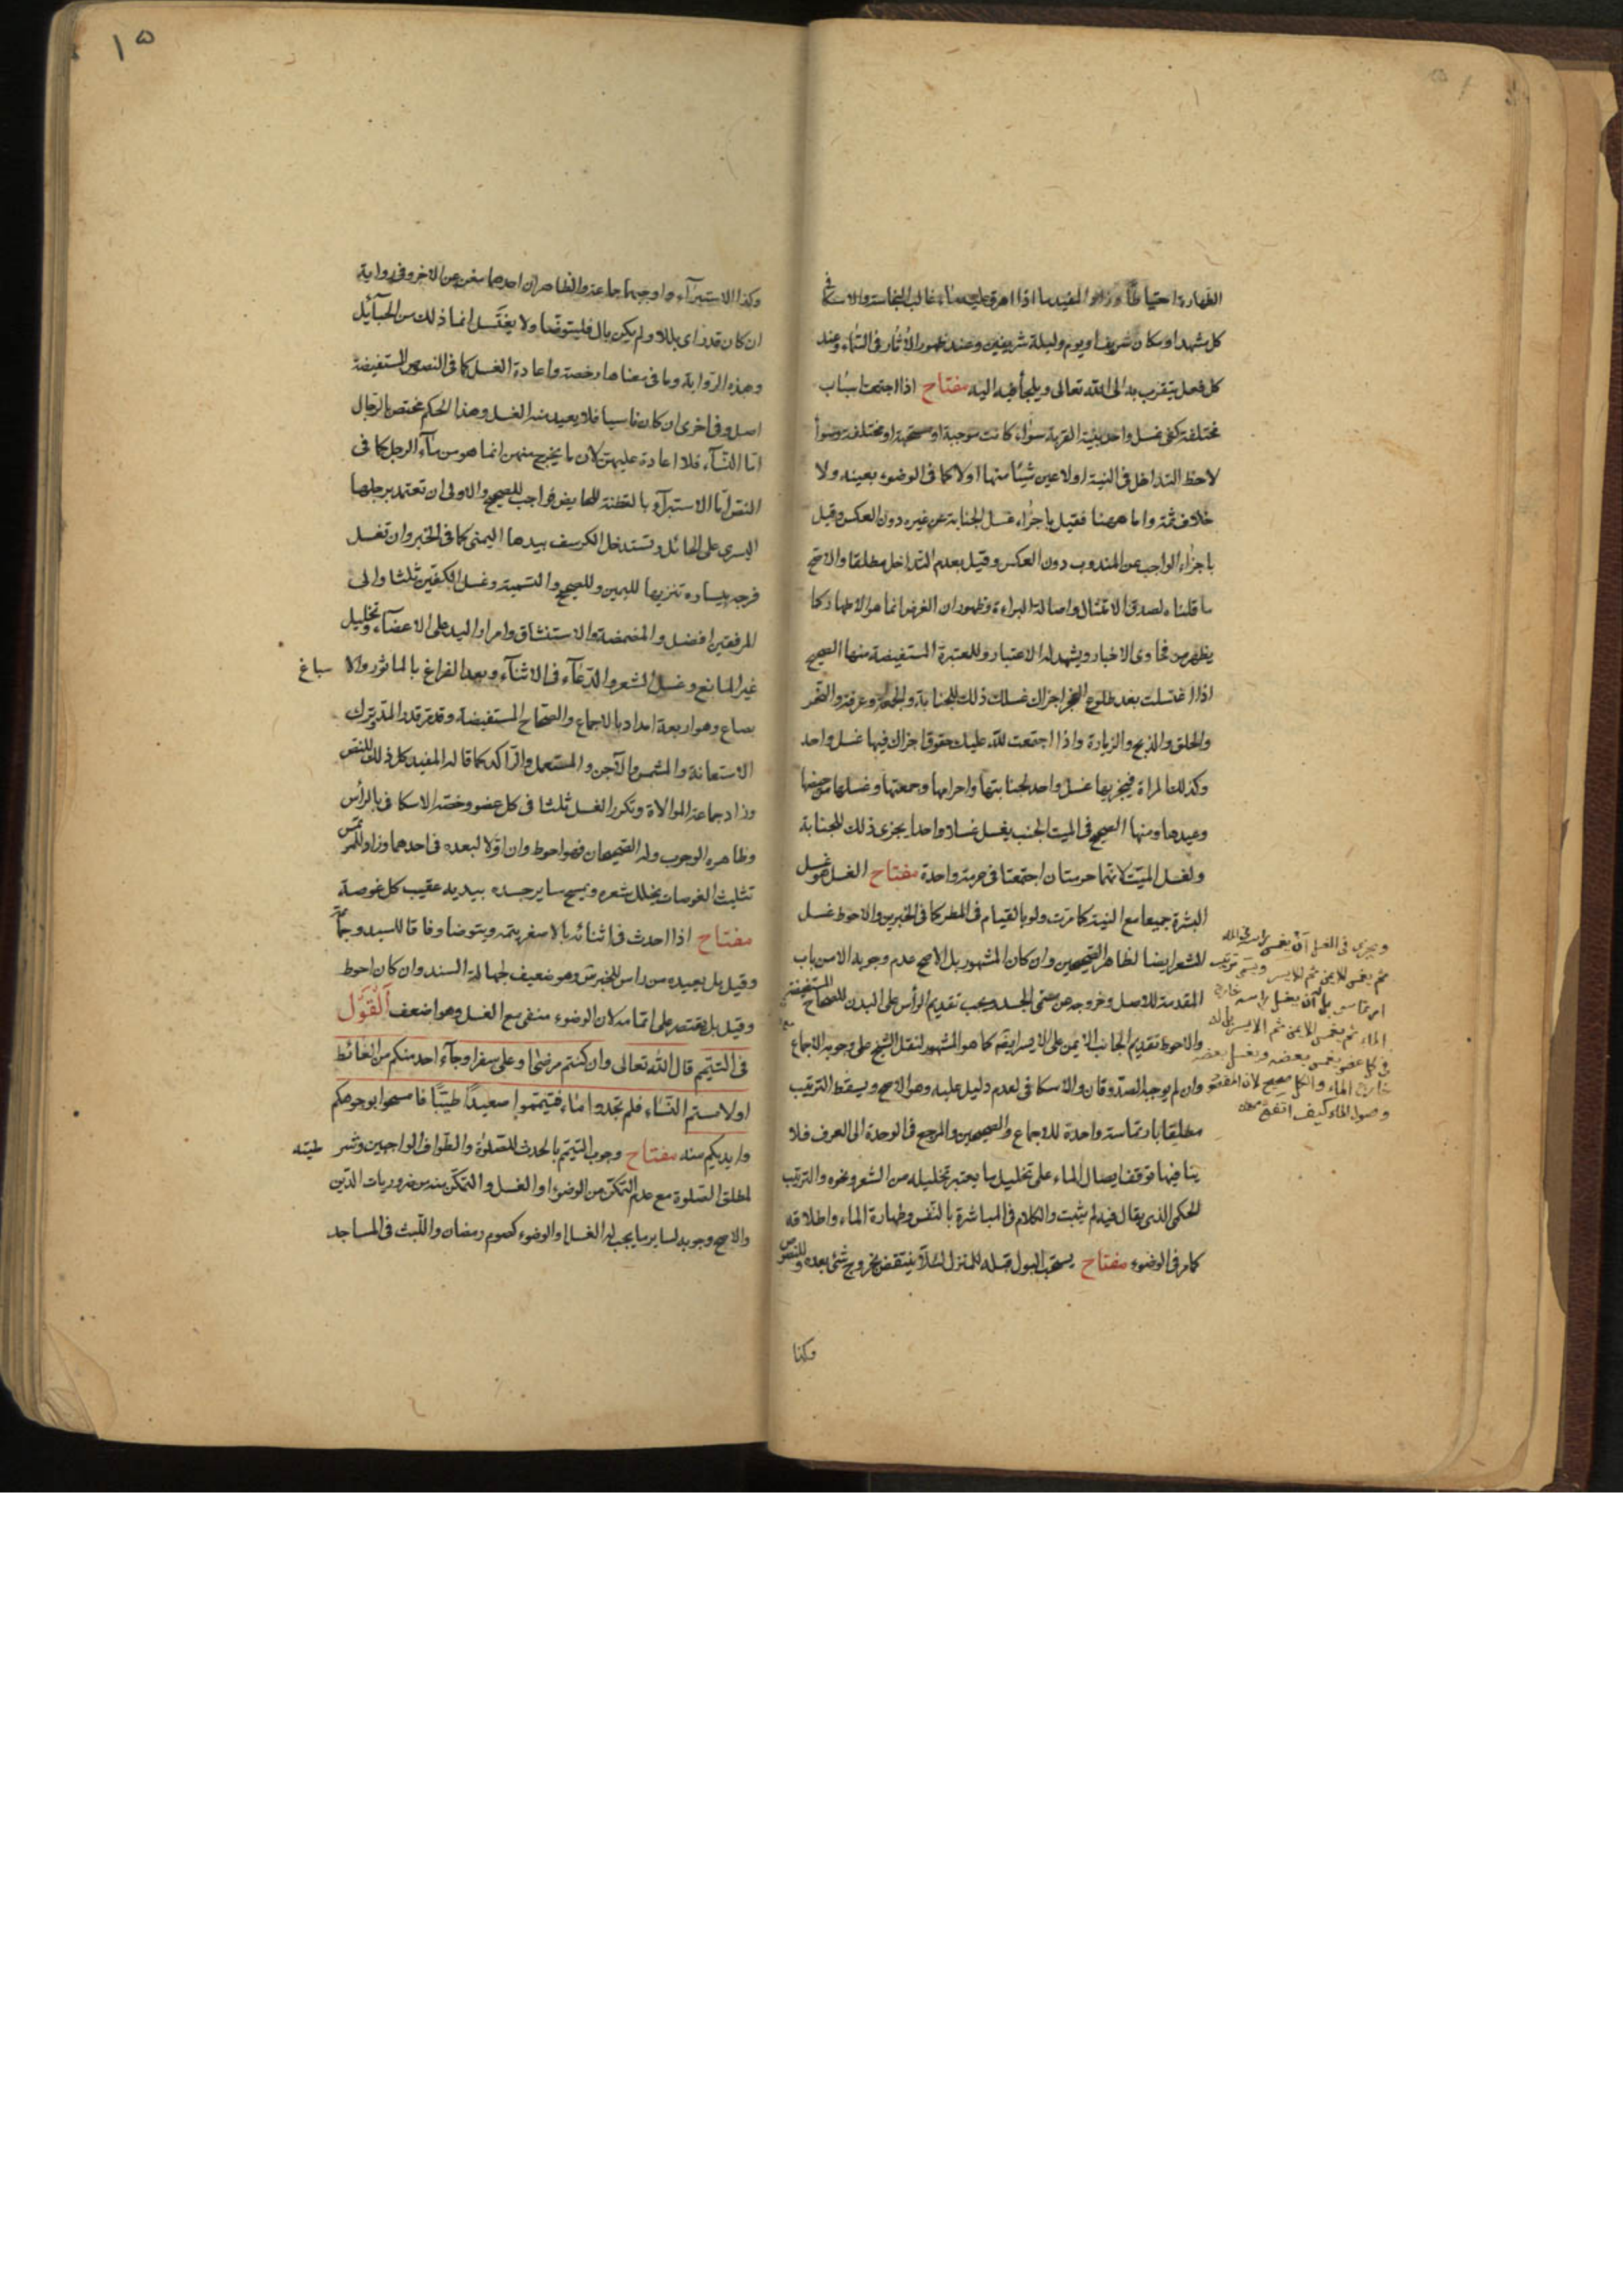 الطهارة احتياطاً وزاد المفيد ما اذا اهرق عليه ماء غالب النجاسة والاسكافي
كل مشهد او مكان شريف او يوم وليلة شريفين وعند ظهور الاثار في السماء وعند
كل فعل يتقرب به الى الله تعالى ويلجأ فيه اليه مفتاح اذا اجتمعت اسباب
مختلفة كفى غسل واحد بنية القربة سواء كانت موجبة او مستحبة او مختلفة وسواء
لاحظ التداخل في النية او لا عين شيئا منها او لا كما في الوضوء بعينه ولا
خلاف ثمة واما ههنا فقيل باجزاء غسل الجنابة عن غيره دون العكس وقيل
باجزاء الواجب عن المندوب دون العكس وقيل بعدم التداخل مطلقا والاصح
ما قلناه لصدق الامتثال واصالة البراءة وظهور ان الغرض انما هو الاطهار كما
يظهر من فحاوى الاخبار ويشهد له الاعتبار وللمعتبرة المستفيضة منها الصحيح
اذا اغتسلت بعد طلوع الفجر اجزاك غسلك ذلك للجنابة والجمعة وعرفة والنحر
والحلق والذبح والزيارة واذا اجتمعت لله عليك حقوق اجزاك فيها غسل واحد
وكذلك المراة فيجزيها غسل واحد لجنابتها واحرامها وجمعتها وغسلها من حيضها
وعيدها ومنها الصحيح في الميت الجنب يغسل غسلا واحدا يجزى ذلك للجنابة
ولغسل الميت لانهما حرمتان اجتمعتا في حرمة واحدة مفتاح الغسل هو غسل
البشرة جميعا مع النية كما مرت ولو بالقيام في المطر كما في الخبرين والاحوط غسل
الشعر ايضا لظاهر الصحيحين وان كان المشهور بل الاصح عدم وجوبه الا من باب
المقدمة للاصل وخروجه عن مسمى الجسد ويجب تقديم الرأس على البدن للصحاح المستفيضة
والاحوط تقديم الجانب الايمن على الايسر ايضا كما هو المشهور لنقل الشيخ على وجوبه الاجماع
وان لم يوجبه الصدوقان والاسكافي لعدم دليل عليه وهو الاصح ويسقط الترتيب
مطلقا بارتماسة واحدة للاجماع والصحيحين والمرجع في الوحدة الى العرف فلا
ينافيها توقف ايصال الماء على تخليل ما يعتبر تخليله من الشعر ونحوه والترتيب
الحكمي الذي يقال فيه لم يثبت والكلام في المباشرة بالنفس وطهارة الماء واطلاقه
كما مر في الوضوء مفتاح يستحب البول قبله للمنزل لئلا ينتقض بخروج شئ بعده وللنصوص
وكذا
ويجزى في الغسل ان يغمس راسه في الماء
ثم يغمس الايمن ثم الايسر ويسمى ترتيب
ارتماسى بل ان يغسل راسه خارج
الماء ثم يغمس الايمن ثم الايسر بل له
في كل عضو يغمس بعضه ويغسل بعضه
خارج الماء والكل صحيح لان المقصود
وصول الماء كيف اتفق
١٥
وكذا الاستبراء واوجبهما جماعة والظاهر ان احدهما مغن عن الاخر وفي رواية
ان كان قد راى بللا ولم يكن بال فليتوضا ولا يغتسل انما ذلك من الحبائل
وهذه الرواية وما في معناها رخصة واعادة الغسل كما في النصوص المستفيضة
اصل وفي اخرى ان كان ناسيا فلا يعيد منه الغسل وهذا الحكم مختص بالرجال
اما النساء فلا اعادة عليهن لان ما يخرج منهن انما هو من ماء الرجل كما في
النص اما الاستبراء بالقطنة للحايض فواجب للصحيح والاولى ان تعتمد برجلها
اليسرى على الحائل وتستدخل الكرسف بيدها اليمنى كما في الخبر وان تغسل
فرجه بيساره تنزيها لليمين وللصحيح والتسمية وغسل الكفين ثلثا والى
المرفقين افضل والمضمضة والاستنشاق وامرار اليد على الاعضاء وتخليل
غير المانع وغسل الشعر والدعاء في الاثناء وبعد الفراغ بالماثور والا سباغ
بصاع وهو اربعة امداد بالاجماع والصحاح المستفيضة وقد مر قدر المد وترك
الاستعانة والمشمس والآجن والمستعمل والراكد كما قاله المفيد كل ذلك للنص
وزاد جماعة الموالاة وتكرر الغسل ثلثا في كل عضو وخصه الاسكافي بالرأس
وظاهره الوجوب وله الصحيحان فهو احوط وان اولا لبعده في احدهما وزاد للمرتمس
تثليث الغوصات يخلل شعره ويمسح ساير جسده بيديه عقيب كل غوصة
مفتاح اذا احدث في اثنائه بالاصغر يتمه ويتوضا وفاقا للسيد وجماعة
وقيل بل يعيده من راس للخبرين وهو ضعيف لجهالة السند وان كان احوط
وقيل بل يقتصر على اتمامه لان الوضوء منفى مع الغسل وهو اضعف اَلْقَوْل
في التيمم قال الله تعالى وان كنتم مرضى او على سفر او جاء احد منكم من الغائط
او لامستم النساء فلم تجدوا ماء فتيمموا صعيدًا طيبًا فامسحوا بوجوهكم
وايديكم منه مفتاح وجوب التيمم بالحدث للصلوة والطواف الواجبين وشرطيته
لمطلق الصلوة مع عدم التمكن من الوضوء او الغسل والتمكن منه من ضروريات الدين
والاصح وجوبه لساير ما يجب له الغسل او الوضوء كصوم رمضان واللبث في المساجد